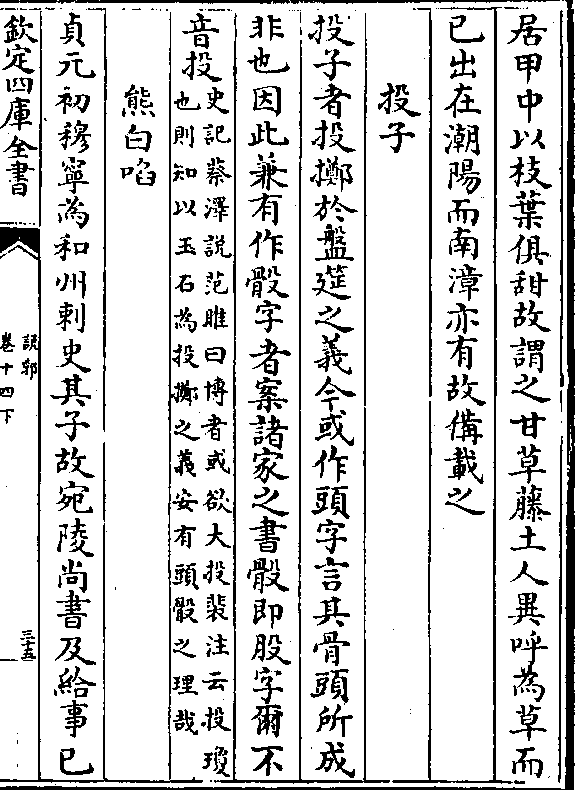 居甲中以枝葉俱甜故謂之甘草藤土人異呼為草而
已出在潮陽而南漳亦有故備載之
投子
投子者投擲於盤筵之義今或作頭字言其骨頭所成
非也因此兼有作骰字者案諸家之書骰即股字爾不
音投史記蔡澤說范雎曰博者或欲大投裴注云投瓊
也則知以玉石為投擲之義安有頭骰之理哉
熊白啗
貞元初穆寧為和州刺史其子故宛陵尚書及給事已
欽定四庫全書
說郛
卷十四下
三十五